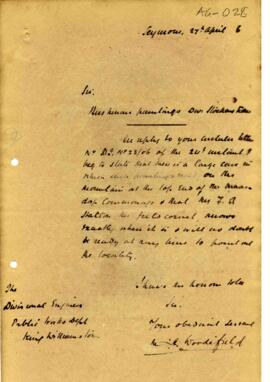 AG-028
Seymour, 27th April 6
Sir
Bushman paintings Div: Stockenstrom
In reply to your circular letter
No D.E. No 33/06 of the 24th instant I
beg to state that there is a large cave in
which such paintings exist on the
mountain at the top end of the
dap Commonage & that Mr T. A
Station the field cornet knows
exactly where it is & will no doubt
be ready at any time to point out
the locality.
I have the honor to be
Sir
Your obedient servant
Woodifield
The
Divisional Engineer
Public Works Dept
King Williamstown